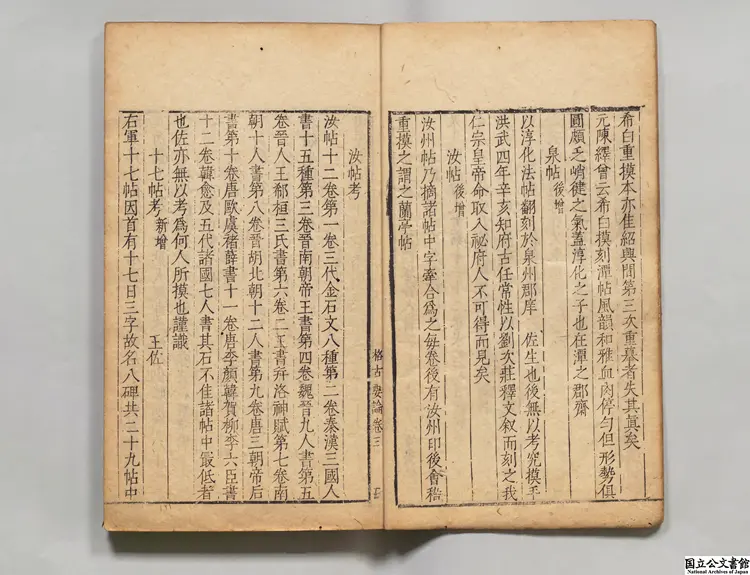 希白重摸本亦佳紹興間第三次重摹者失其眞矣
元陳繹曾云希白摸刻潭帖風韻和雅血肉停勻但形勢俱
圓頗乏峭健之氣蓋淳化之子也在潭之郡齋
泉帖後增
以淳化法帖翻刻於泉州郡庠 佐生也後無以考究摸手
洪武四年辛亥知府古任常性以劉次莊釋文叙而刻之我
仁宗皇帝命取入祕府人不可得而見矣
汝帖後增
汝州帖乃摘諸帖中字牽合爲之每卷後有汝州印後會稽
重摸之謂之蘭亭帖
格古要論卷三
汝帖考
汝帖十二卷第一卷三代金石文八種第二卷秦漢三國人
書十五種第三卷晉南朝帝王書第四卷魏晉九人書第五
卷晉人王郗桓三氏書第六卷二王書幷洛神賦第七卷南
朝十人書第八卷晉胡北朝十二人書第九卷唐三朝帝后
書第十卷唐歐虞褚薛書十一卷唐李顏韓賀柳李六臣書
十二卷韓愈及五代諸國七人書其石不佳諸帖中最低者
也佐亦無以考爲何人所摸也謹識
十七帖考新增 王佐
右軍十七帖因首有十七日三字故名八碑共二十九帖中
国立公文書館
National Archives of Japan